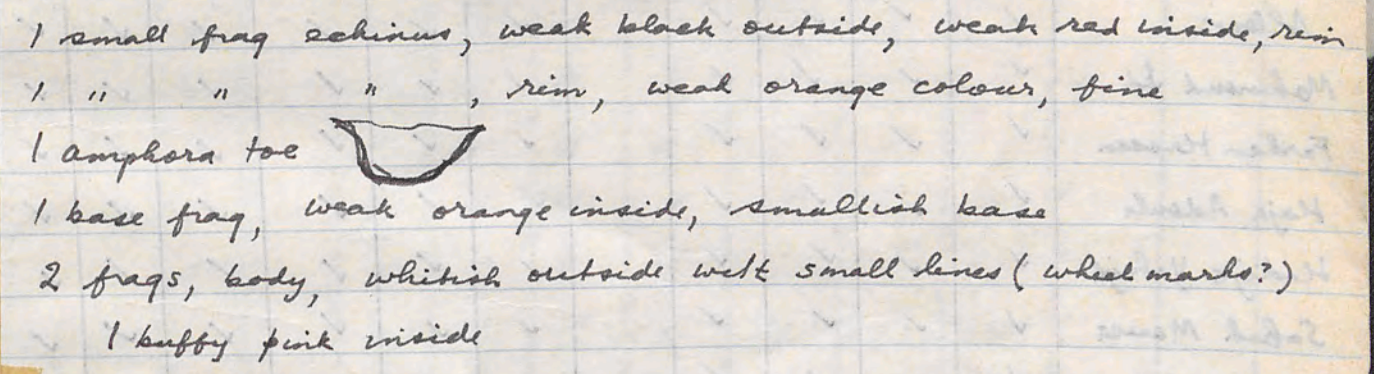 1 small frag echinus, weak black outside, weak red inside, rim
1 " " " , rim, weak orange colour, fine
1 amphora toe
1 base frag, weak orange inside, smallish base
2 frags, body, whitish outside with small lines (wheel marks?)
1 buffy pink inside